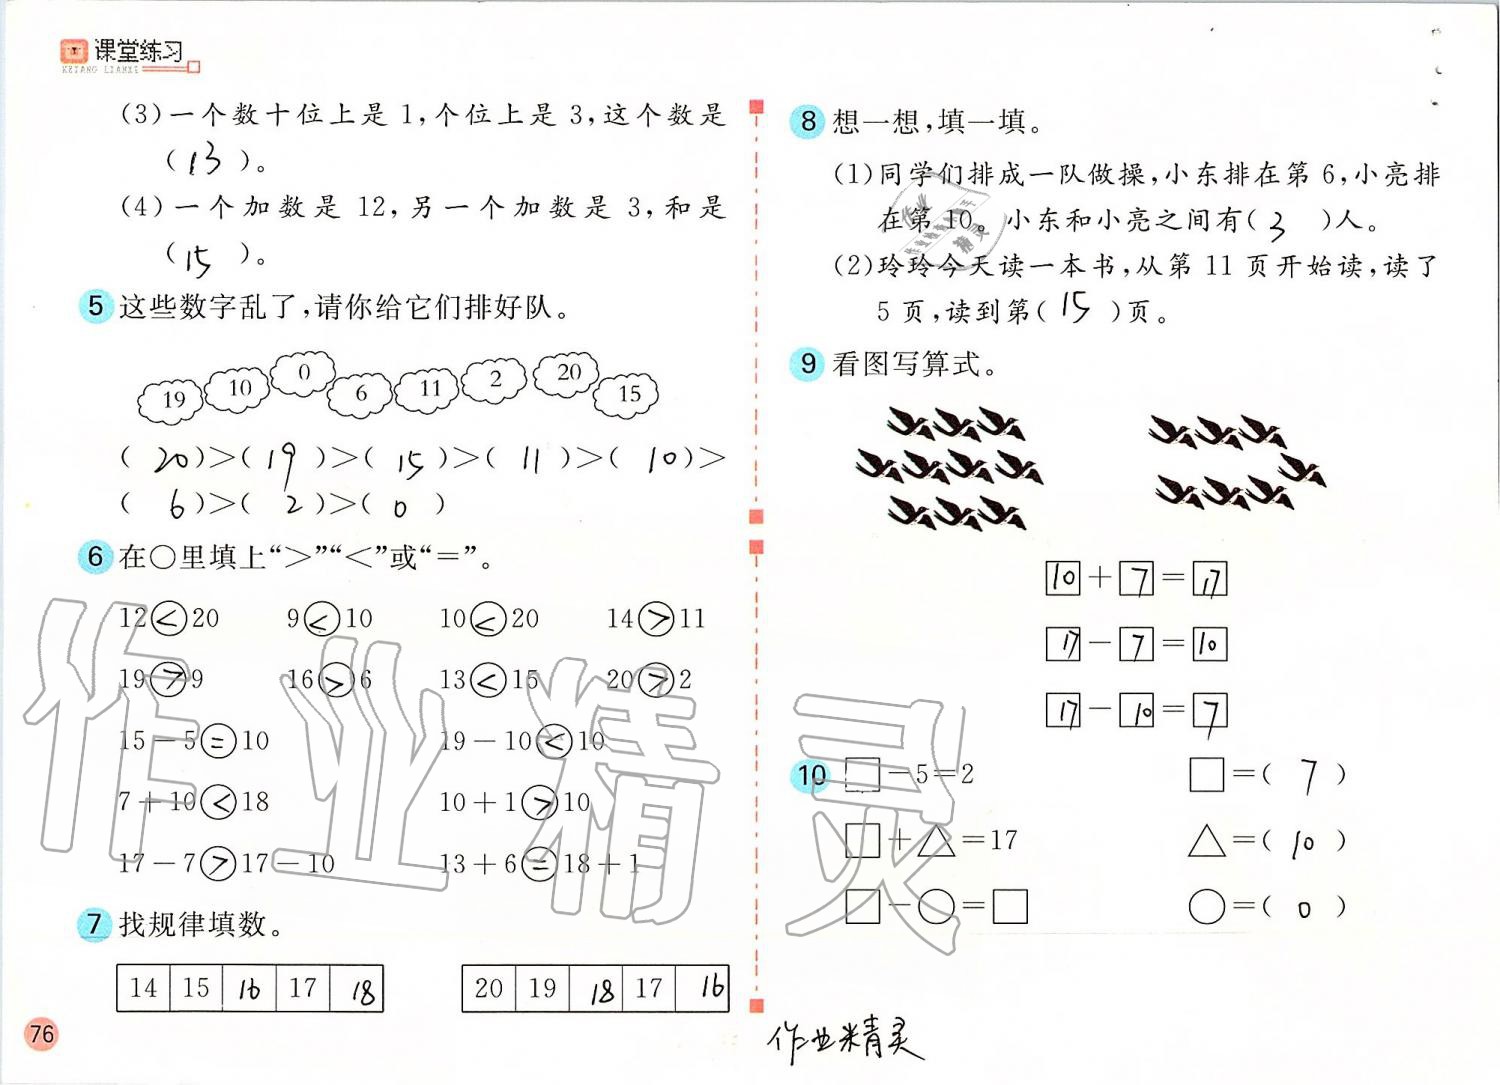 课堂练习
KETANG LIANXI
(3)一个数十位上是 1,个位上是 3,这个数是
( 13 )。
(4)一个加数是 12,另一个加数是 3,和是
( 15 )。
5 这些数字乱了,请你给它们排好队。
19 10 0 6 11 2 20 15
( 20 )>( 19 )>( 15 )>( 11 )>( 10 )>
( 6 )>( 2 )>( 0 )
6 在○里填上“>”“<”或“=”。
12<20 9<10 10<20 14>11
19>9 16>6 13<15 20>2
15-5=10 19-10<10
7+10<18 10+1>10
17-7>17-10 13+6=18+1
7 找规律填数。
14 15 16 17 18 20 19 18 17 16
76
8 想一想,填一填。
(1)同学们排成一队做操,小东排在第 6,小亮排
在第 10。小东和小亮之间有( 3 )人。
(2)玲玲今天读一本书,从第 11 页开始读,读了
5 页,读到第( 15 )页。
9 看图写算式。
10+7=17
17-7=10
17-10=7
10 □-5=2 □=( 7 )
□+△=17 △=( 10 )
□-○=□ ○=( 0 )
作业精灵
作业精灵